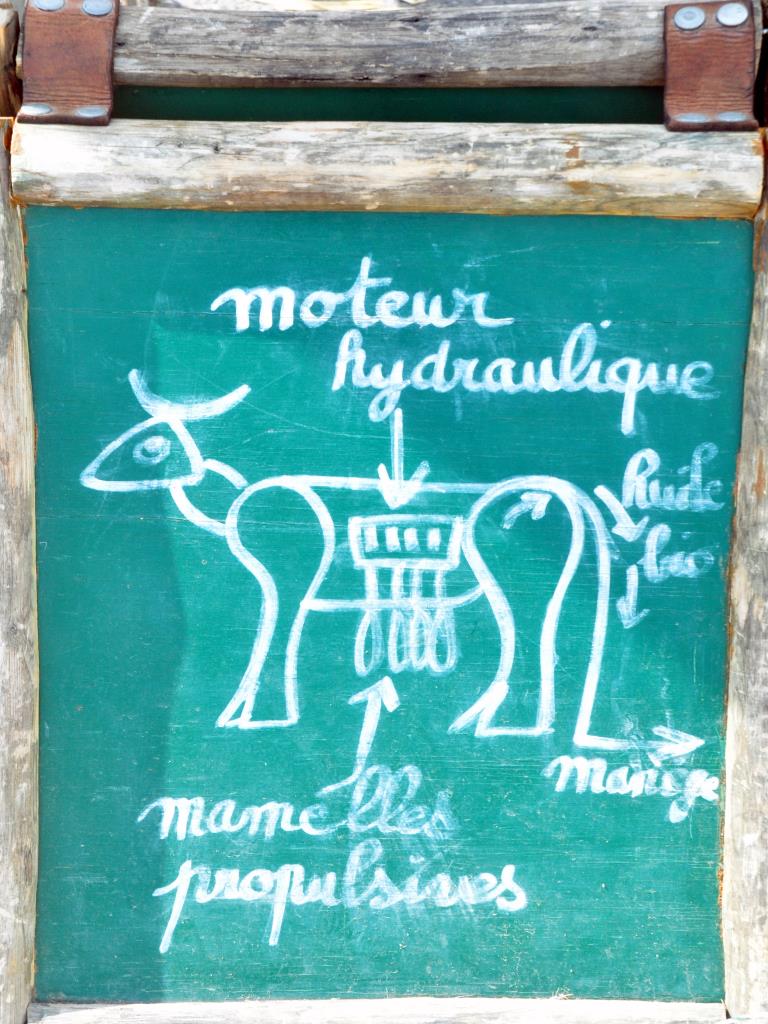 moteur
hydraulique
huile
bio
manège
mamelles
propulsives